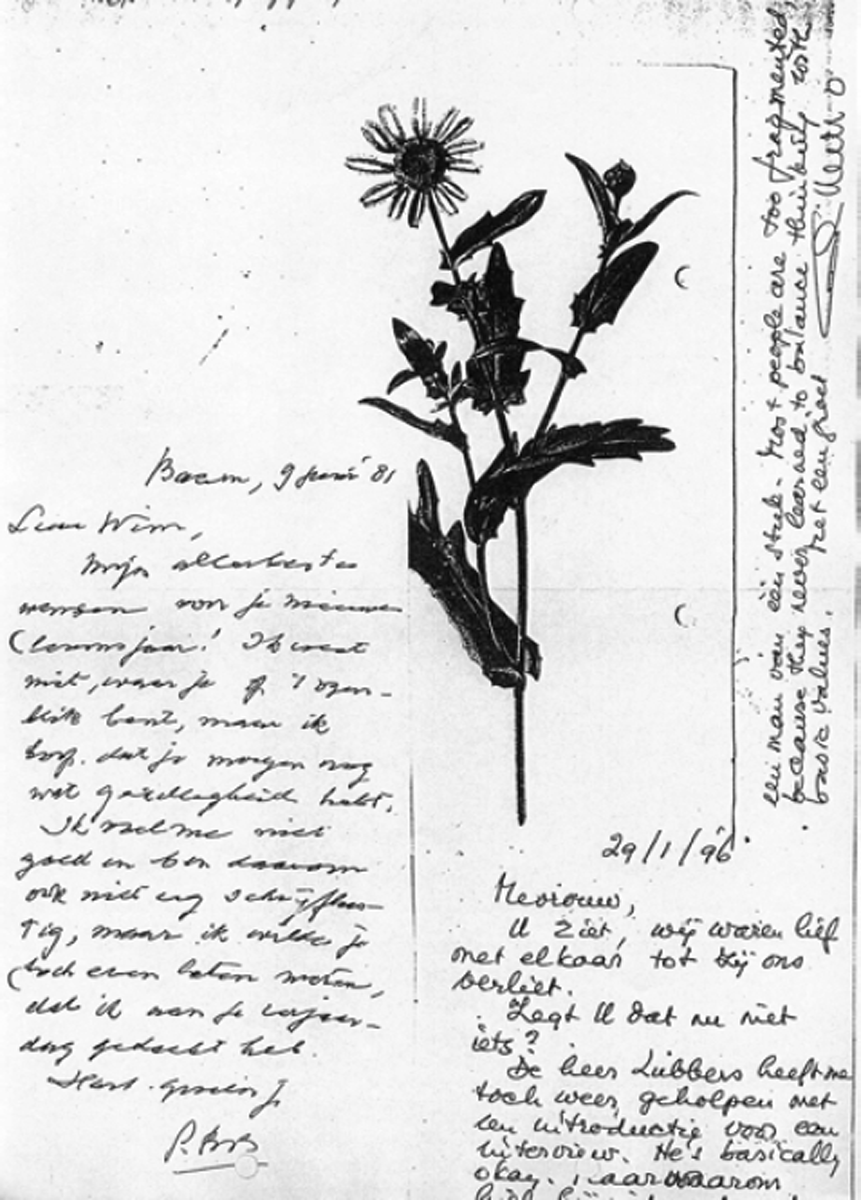 Baarn, 9 juni '81
Lieve Wim,
Mijn allerbeste
wensen voor je nieuwe
levensjaar! Ik weet
niet, waar je op 't ogen-
blik bent, maar ik
hoop dat je morgen nog
wat gezelligheid hebt.
Ik voel me niet
goed en ben daarom
ook niet erg schrijflus-
tig, maar ik wilde je
toch even laten weten,
dat ik aan je verjaar-
dag gedacht heb.
Hart. groeten,
29/1/96
Mevrouw,
U ziet, wij waren lief
met elkaar tot zij ons
verliet.
Zegt U dat nu niet
iets?
De heer Lubbers heeft me
toch weer geholpen met
een introductie voor een
interview. He's basically
okay. waarom
een man van één stuk - Most people are too fragmented,
because they never learned to balance thinking with
basic values. Met een groet